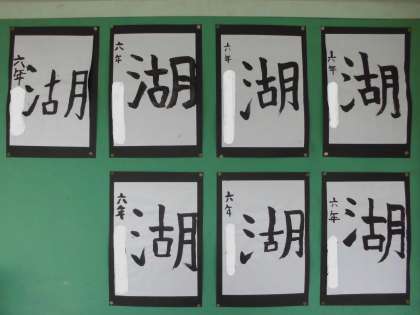 六年
湖
六年
湖
六年
湖
六年
湖
六年
湖
六年
湖
六年
湖